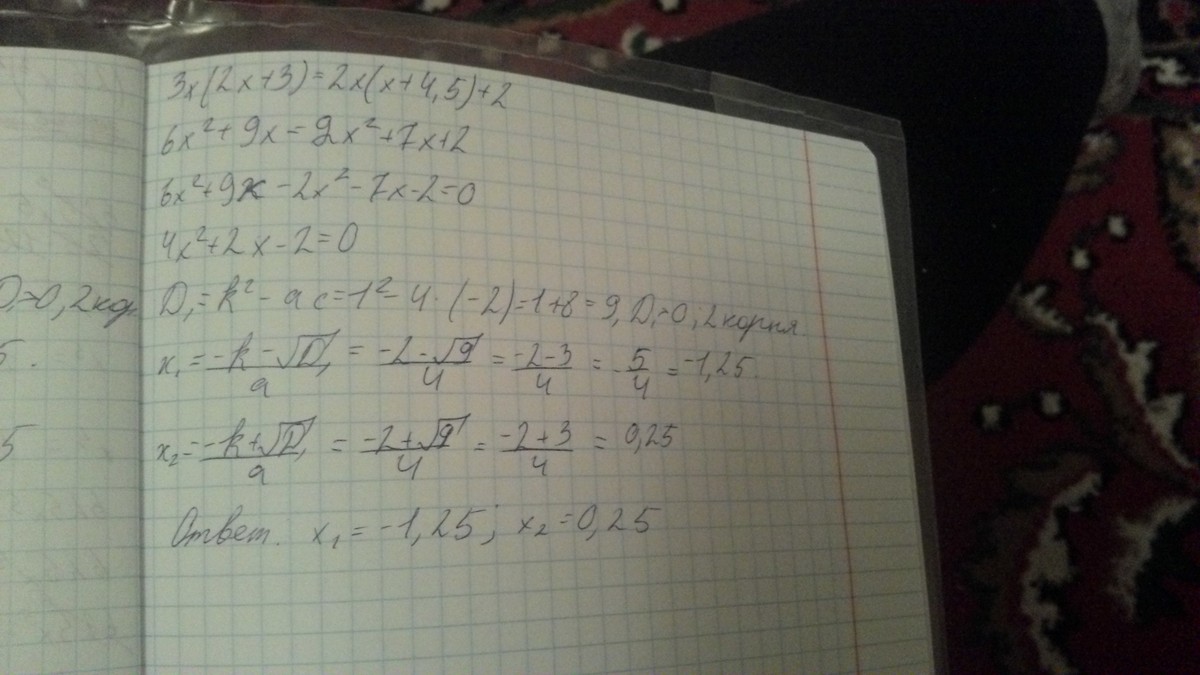 3x(2x+3)=2x(x+4,5)+2
6x²+9x=2x²+7x+2
6x²+9x-2x²-7x-2=0
4x²+2x-2=0
D₁>0, 2 кор. D₁=k²-ac=1²-4·(-2)=1+8=9, D₁>0, 2 корня.
5. x₁=(-k-√D₁)/a=(-2-√9)/4=(-2-3)/4=-5/4=-1,25.
5 x₂=(-k+√D₁)/a=(-2+√9)/4=(-2+3)/4=0,25
Ответ. x₁=-1,25; x₂=0,25